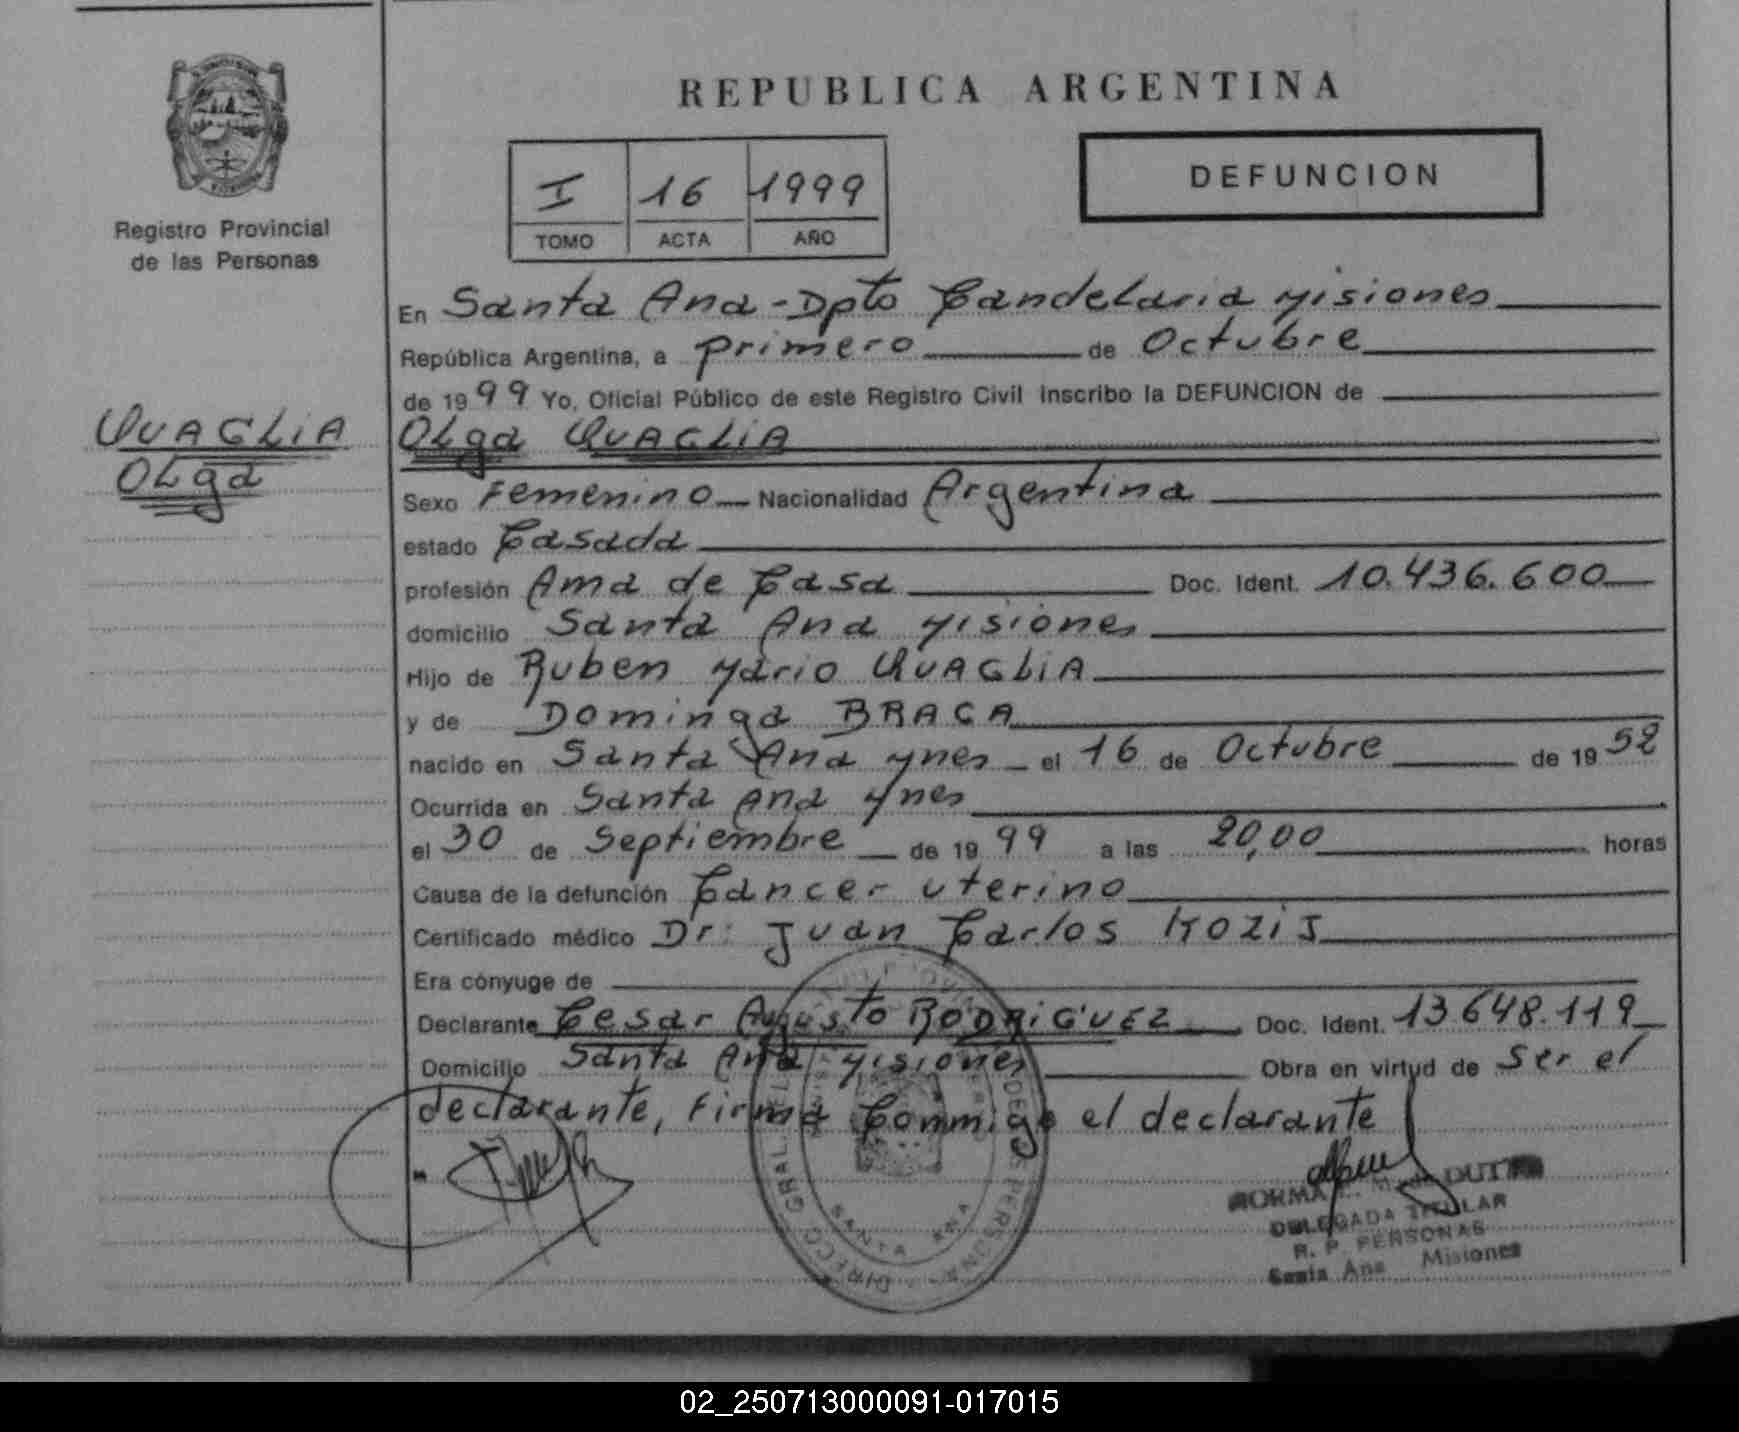 REPUBLICA ARGENTINA
Registro Provincial
de las Personas
I 16 1999
TOMO ACTA AÑO
DEFUNCION
En Santa Ana - Dpto Candelaria Misiones
República Argentina, a primero de Octubre
de 1999 Yo, Oficial Público de este Registro Civil inscribo la DEFUNCION de
QUAGLIA
Olga
Olga QUAGLIA
Sexo Femenino Nacionalidad Argentina
estado Casada
profesión Ama de Casa Doc. Ident. 10.436.600
domicilio Santa Ana Misiones
Hijo de Ruben Mario QUAGLIA
y de Dominga
nacido en Santa Ana Mnes el 16 de Octubre de 1952
Ocurrida en Santa Ana Mnes
el 30 de Septiembre de 1999 a las 20,00 horas
Causa de la defunción Cancer uterino
Certificado médico Dr: Juan Carlos
Era cónyuge de
Declarante Cesar Augusto RODRIGUEZ Doc. Ident. 13.648.119
Domicilio Santa Ana Misiones Obra en virtud de Ser el
declarante, Firma Commigo el declarante
DIREC. GRAL. DE PERSONAS
SANTA ANA
NORMA
DELEGADA TITULAR
R. P. PERSONAS
Santa Ana Misiones
02_250713000091-017015